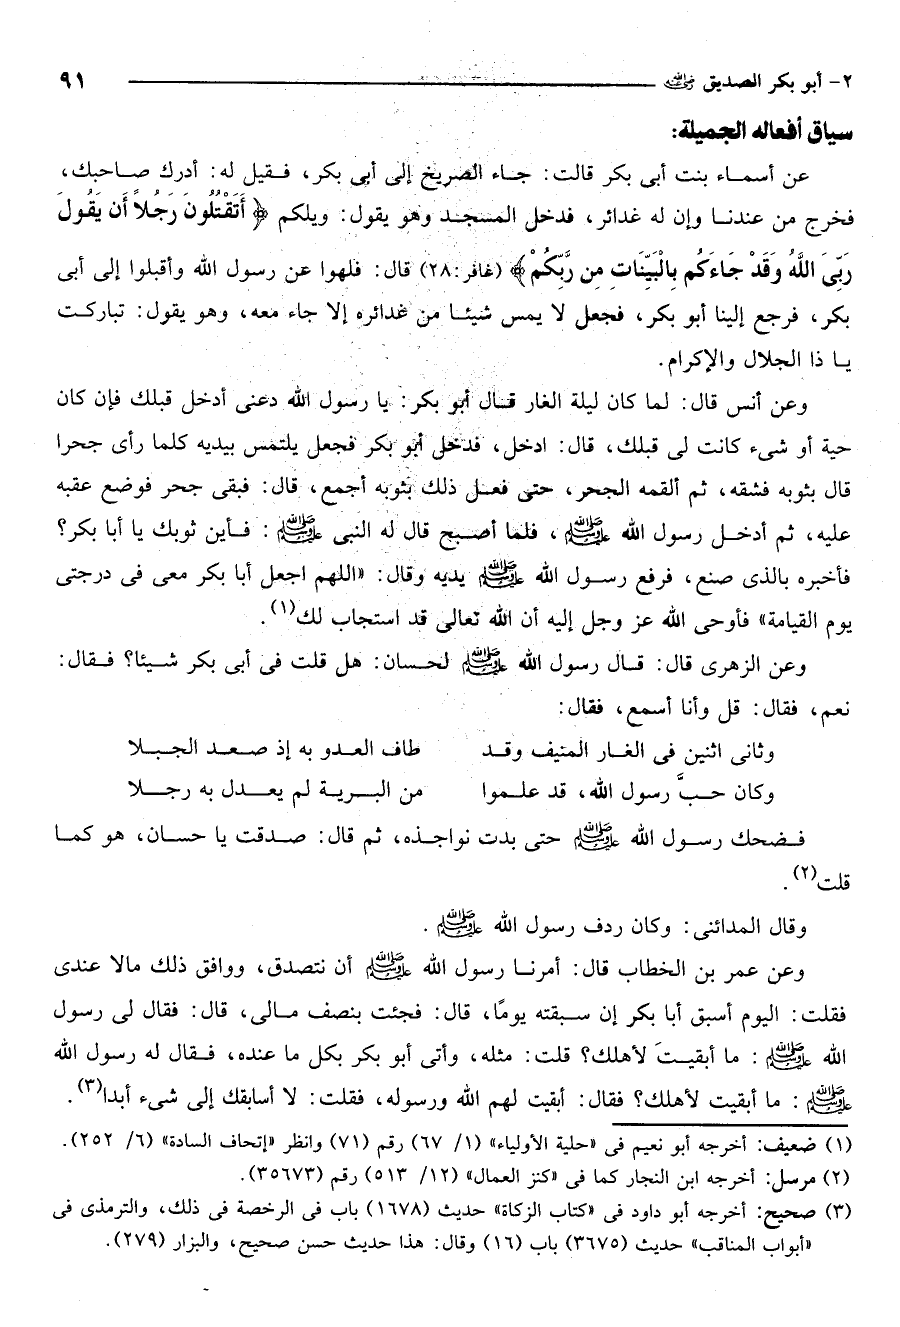 ٢- أبو بكر الصديق رضي الله عنه ٩١
سياق أفعاله الجميلة:
عن أسماء بنت أبى بكر قالت: جاء الصريخ إلى أبى بكر، فقيل له: أدرك صاحبك،
فخرج من عندنا وإن له غدائر، فدخل المسجد وهو يقول: ويلكم ﴿ أَتَقْتُلُونَ رَجُلاً أَن يَقُولَ
رَبِّىَ اللَّهُ وَقَدْ جَاءَكُم بِالْبَيِّنَاتِ مِن رَّبِّكُمْ ﴾ (غافر:٢٨) قال: فلهوا عن رسول الله وأقبلوا إلى أبى
بكر، فرجع إلينا أبو بكر، فجعل لا يمس شيئا من غدائره إلا جاء معه، وهو يقول: تباركت
يا ذا الجلال والإكرام.
وعن أنس قال: لما كان ليلة الغار قال أبو بكر: يا رسول الله دعنى أدخل قبلك فإن كان
حية أو شىء كانت لى قبلك، قال: ادخل، فدخل أبو بكر فجعل يلتمس بيديه كلما رأى جحرا
قال بثوبه فشقه، ثم ألقمه الجحر، حتى فعل ذلك بثوبه أجمع، قال: فبقى جحر فوضع عقبه
عليه، ثم أدخل رسول الله ﷺ، فلما أصبح قال له النبى ﷺ: فأين ثوبك يا أبا بكر؟
فأخبره بالذى صنع، فرفع رسول الله ﷺ يديه وقال: «اللهم اجعل أبا بكر معى فى درجتى
يوم القيامة» فأوحى الله عز وجل إليه أن الله تعالى قد استجاب لك(١).
وعن الزهرى قال: قال رسول الله ﷺ لحسان: هل قلت فى أبى بكر شيئا؟ فقال:
نعم، فقال: قل وأنا أسمع، فقال:
وثانى اثنين فى الغار المنيف وقد طاف العدو به إذ صعد الجبلا
وكان حبَّ رسول الله، قد علموا من البرية لم يعدل به رجلا
فضحك رسول الله ﷺ حتى بدت نواجذه، ثم قال: صدقت يا حسان، هو كما
قلت(٢).
وقال المدائنى: وكان ردف رسول الله ﷺ.
وعن عمر بن الخطاب قال: أمرنا رسول الله ﷺ أن نتصدق، ووافق ذلك مالا عندى
فقلت: اليوم أسبق أبا بكر إن سبقته يومًا، قال: فجئت بنصف مالى، قال: فقال لى رسول
الله ﷺ: ما أبقيتَ لأهلك؟ قلت: مثله، وأتى أبو بكر بكل ما عنده، فقال له رسول الله
ﷺ: ما أبقيت لأهلك؟ فقال: أبقيت لهم الله ورسوله، فقلت: لا أسابقك إلى شىء أبدا(٣).
(١) ضعيف: أخرجه أبو نعيم فى «حلية الأولياء» (١/ ٦٧) رقم (٧١) وانظر «إتحاف السادة» (٦/ ٢٥٢).
(٢) مرسل: أخرجه ابن النجار كما فى «كنز العمال» (١٢/ ٥١٣) رقم (٣٥٦٧٣).
(٣) صحيح: أخرجه أبو داود فى «كتاب الزكاة» حديث (١٦٧٨) باب فى الرخصة فى ذلك، والترمذى فى
«أبواب المناقب» حديث (٣٦٧٥) باب (١٦) وقال: هذا حديث حسن صحيح، والبزار (٢٧٩).